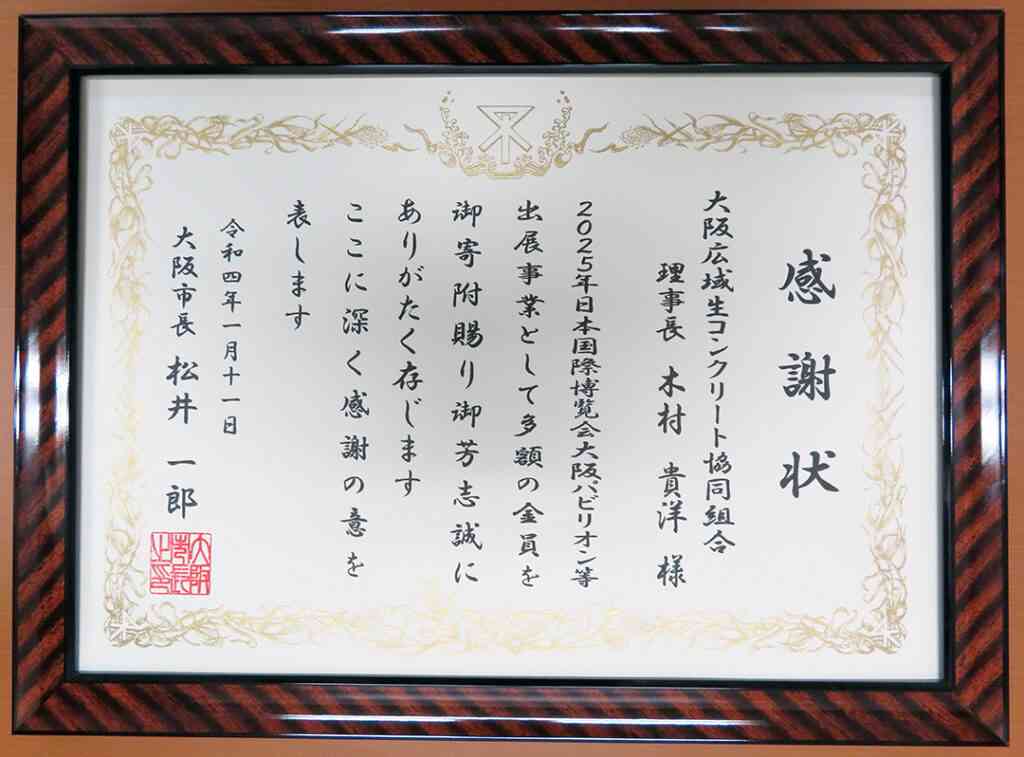 感謝状
大阪広域生コンクリート協同組合
理事長 木村 貴洋 様
2025年日本国際博覧会大阪パビリオン等
出展事業として多額の金員を
御寄附賜り御芳志誠に
ありがたく存じます
ここに深く感謝の意を
表します
令和四年一月十一日
大阪市長 松井 一郎
大阪
市長
之印